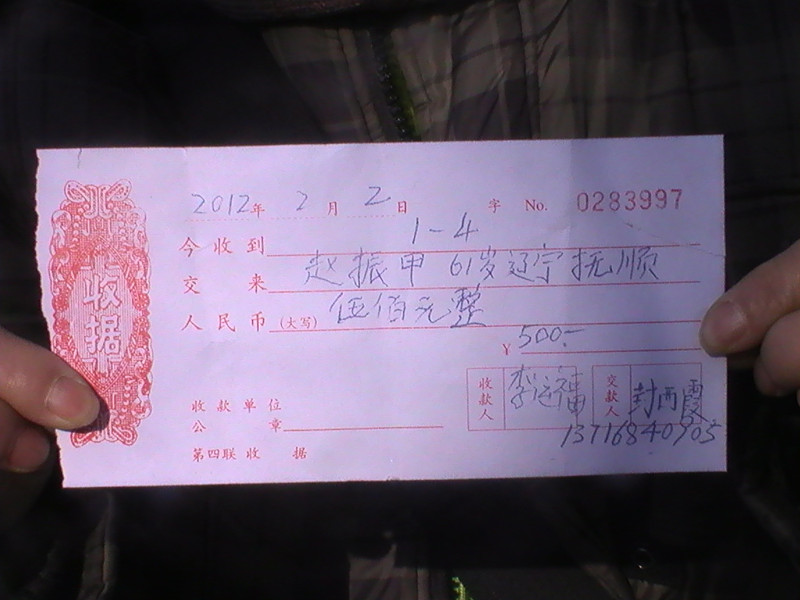 收据
2012年 2 月 2 日 字 No. 0283997
今收到 1-4
交来 赵振甲 61岁辽宁抚顺
人民币(大写) 伍佰元整
¥ 500.-
收款人 李运富 交款人 封西霞
13716840905
收款单位
公章
第四联收据